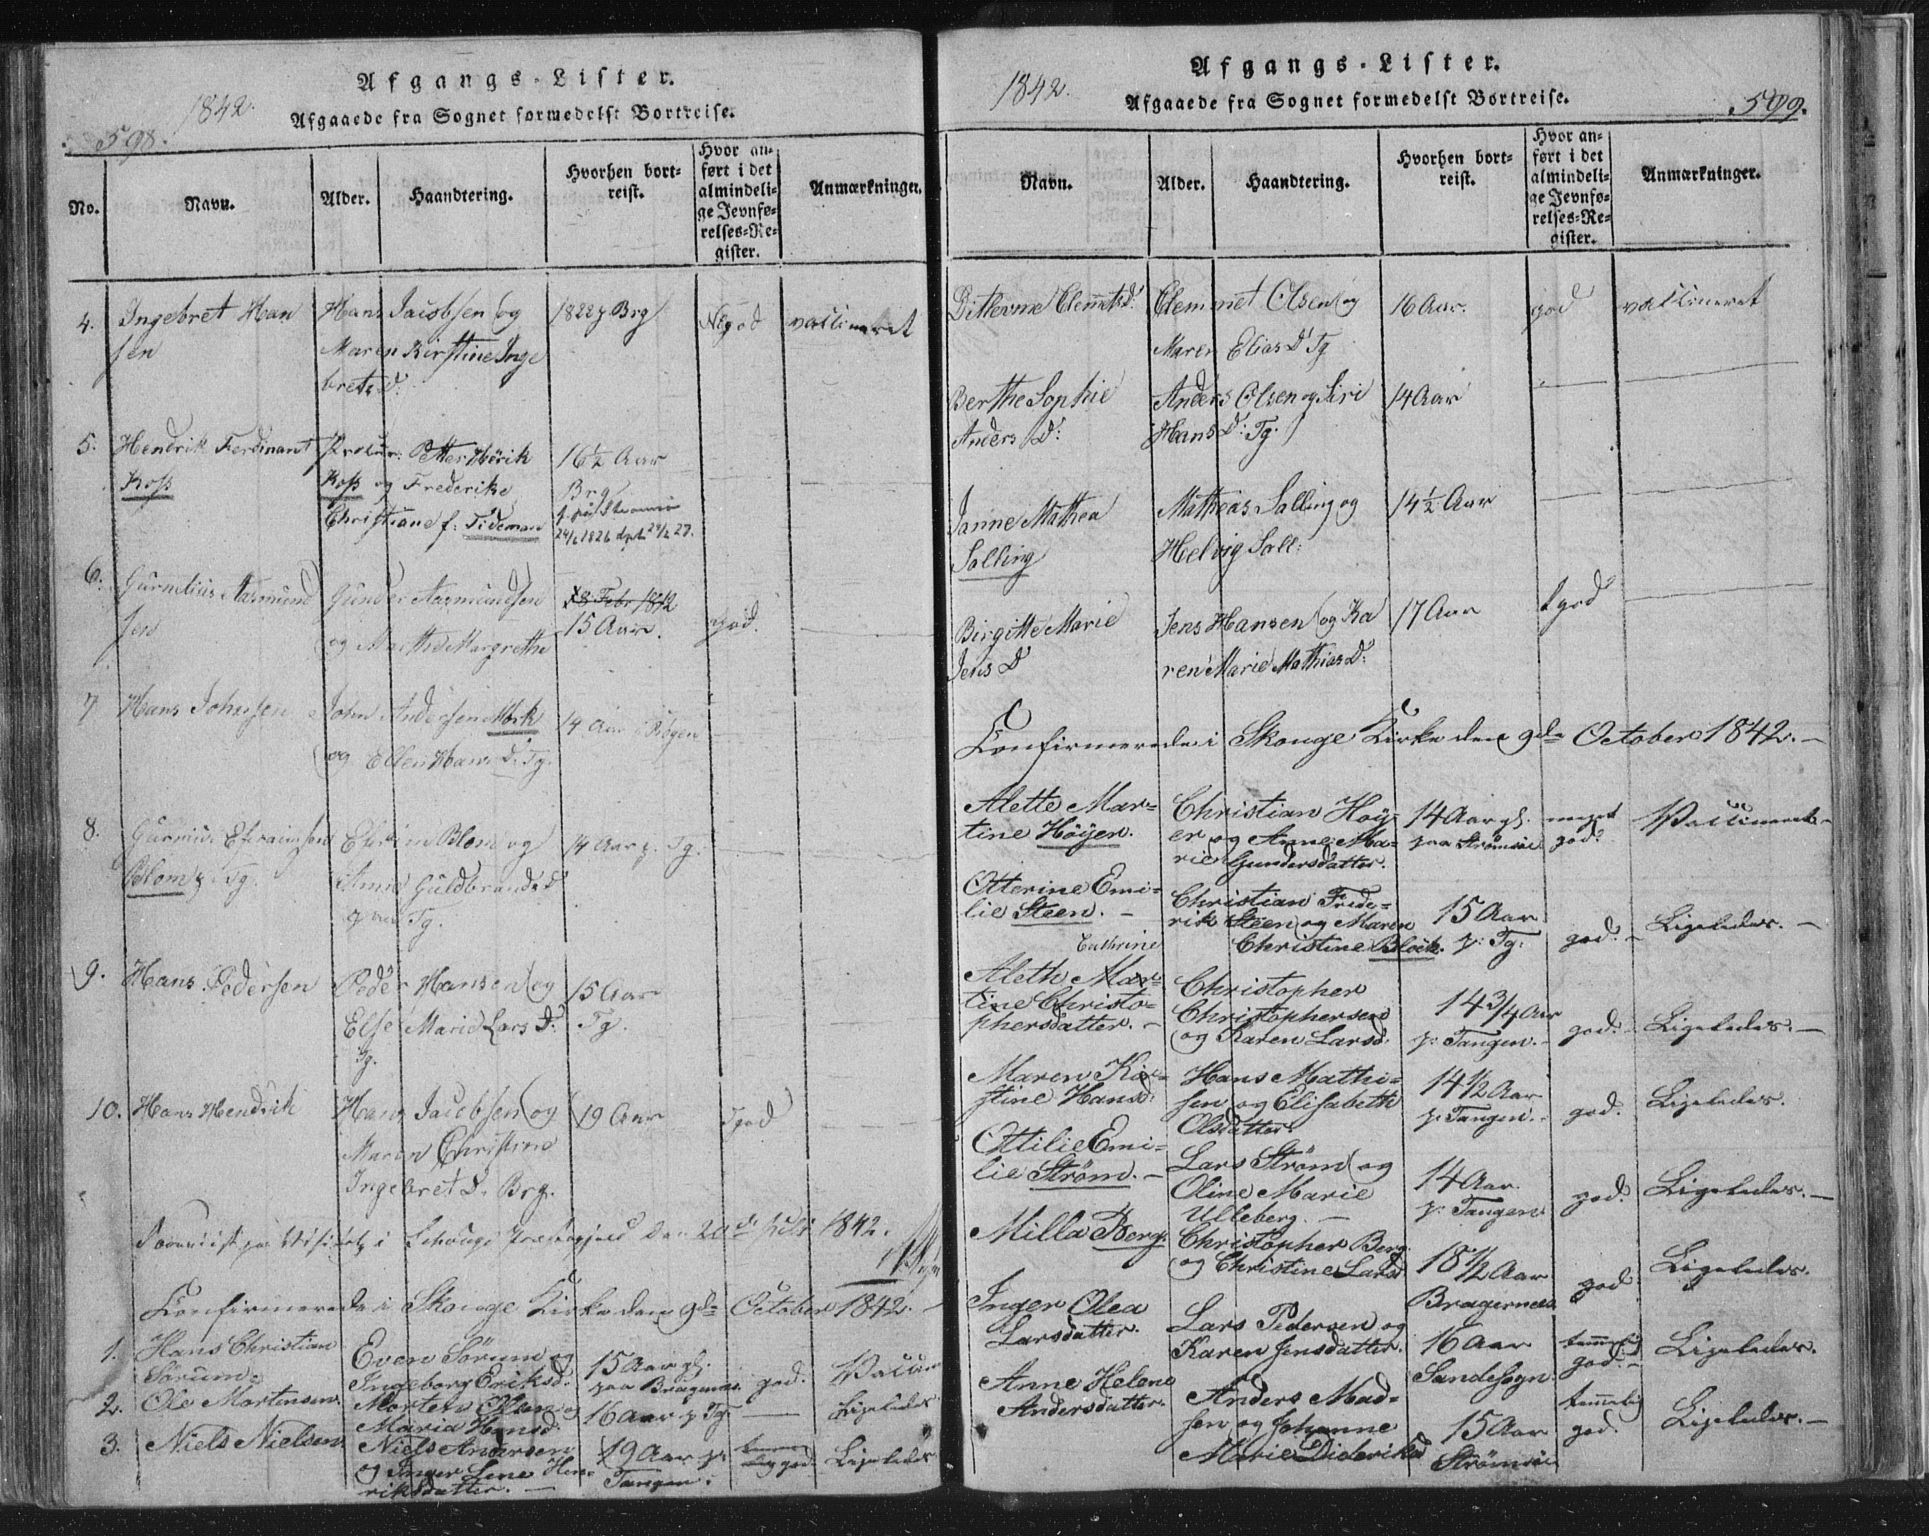 598.
1842.
Afgangs-Lister.
Afgaaede fra Sognet formedelst Bortreise.
No.
Navn.
Alder.
Haandtering.
Hvorhen bort-
reist.
Hvor an-
ført i det
almindeli-
ge Jevnfø-
relses-Re-
gister.
Anmærkninger.
4. Ingebret Han
sen
Hans Jacobsen og
Maren Kirstine Inge
brets D.
Brg
god
vaccineret
5. Hendrik Ferdinant
Koss
Procur: Petter
Koss og Frederike
Christiane f: Tideman
16 1/2 Aar
Brg
6. Aasmund
sen
Gunder Aasmundsen
og Marthe Margrethe
15 Aar.
god.
7 Hans Johnsen
John Andersen Mørk
og Ellen Hans D. Tg.
14 Aar
8. Efraimsen
Blom Tg.
Blom og
Guldbrands D
Tg.
14 Aar p. Tg.
9. Hans Pedersen
Peder Hansen og
Else Marie Lars D:
Tg.
15 Aar
Tg.
10. Hans Hendrik
Hans Jacobsen og
Maren Christine
Ingebret D. Brg.
19 Aar
god
1842.
Confirmerede i Skouge Kirke den 9de October 1842.
1. Hans Christian
Sørum.
Even Sørum og
Ingeborg Eriksd.
15 Aar gl.
paa Bragernæs
god.
Vaccin
2. Ole Mortensen
Morten Olsen og
Maria Hansd.
16 Aar p Tg.
Ligeledes
3. Niels Nielsen
Niels Andersen
og Inger Lene Hen-
riksdatter. —
19 Aar p:
Tangen.
god.
Ligeledes
1842.
Afgangs-Lister.
Afgaaede fra Sognet formedelst Bortreise.
599.
Navn.
Alder.
Haandtering.
Hvorhen bort-
reist.
Hvor an-
ført i det
almindeli-
ge Jevnfø-
relses-Re-
gister.
Anmærkninger.
Clemets D.
Clemmet Olsen og
Maren Elias D Tg
16 Aar.
god
vaccineret
Berthe Sophie
Anders D:
Anders Olsen og Siri
Hans D: Tg.
14 Aar
Janne Mathea
Salling
Mathias Salling og
Helvig Sall:
14 1/2 Aar
Birgitte Marie
Jens D
Jens Hansen og Ka
ren Marie Mathias D:
17 Aar
god
Confirmerede i Skouge Kirke den 9de October 1842. —
Alette Mar-
tine Høyer.
Christian Høy-
er og Anne Ma-
rie Gundersdatter.
14 Aar gl.
paa Strømsøe
meget
god.
Vaccineret.
Otterine Emi-
lie Steen. —
Christian Frede-
rik Steen og Maren
Christine Block.
15 Aar
p: Tg:
god.
Ligeledes. —
Cathrine
Aleth Mar-
tine Christo-
phersdatter. —
Christopher
Christophersen
og Karen Larsd.
14 3/4 Aar
p: Tangen.
god.
Ligeledes. —
Maren Kir-
stine Hansd.
Hans Mathi-
sen og Elisabeth
Olsdatter.
14 1/2 Aar
p: Tangen.
god.
Ligeledes.
Ottilie Emi-
lie Strøm. —
Lars Strøm og
Oline Marie
Ulleberg. —
14 Aar.
p: Tangen
god.
Ligeledes. —
Milla Berg.
Christopher Berg
og Christine Larsd
18 1/2 Aar
Bragernæs
god.
Ligeledes.
Inger Olea
Larsdatter.
Lars Pedersen og
Karen Jensdatter.
16 Aar
Sandesogn.
god.
Ligeledes.
Anne Helene
Andersdatter.
Anders Mad-
sen og Johanne
Marie Dideriksd
15 Aar
Strømsøe
temmelig
god.
Ligeledes. —